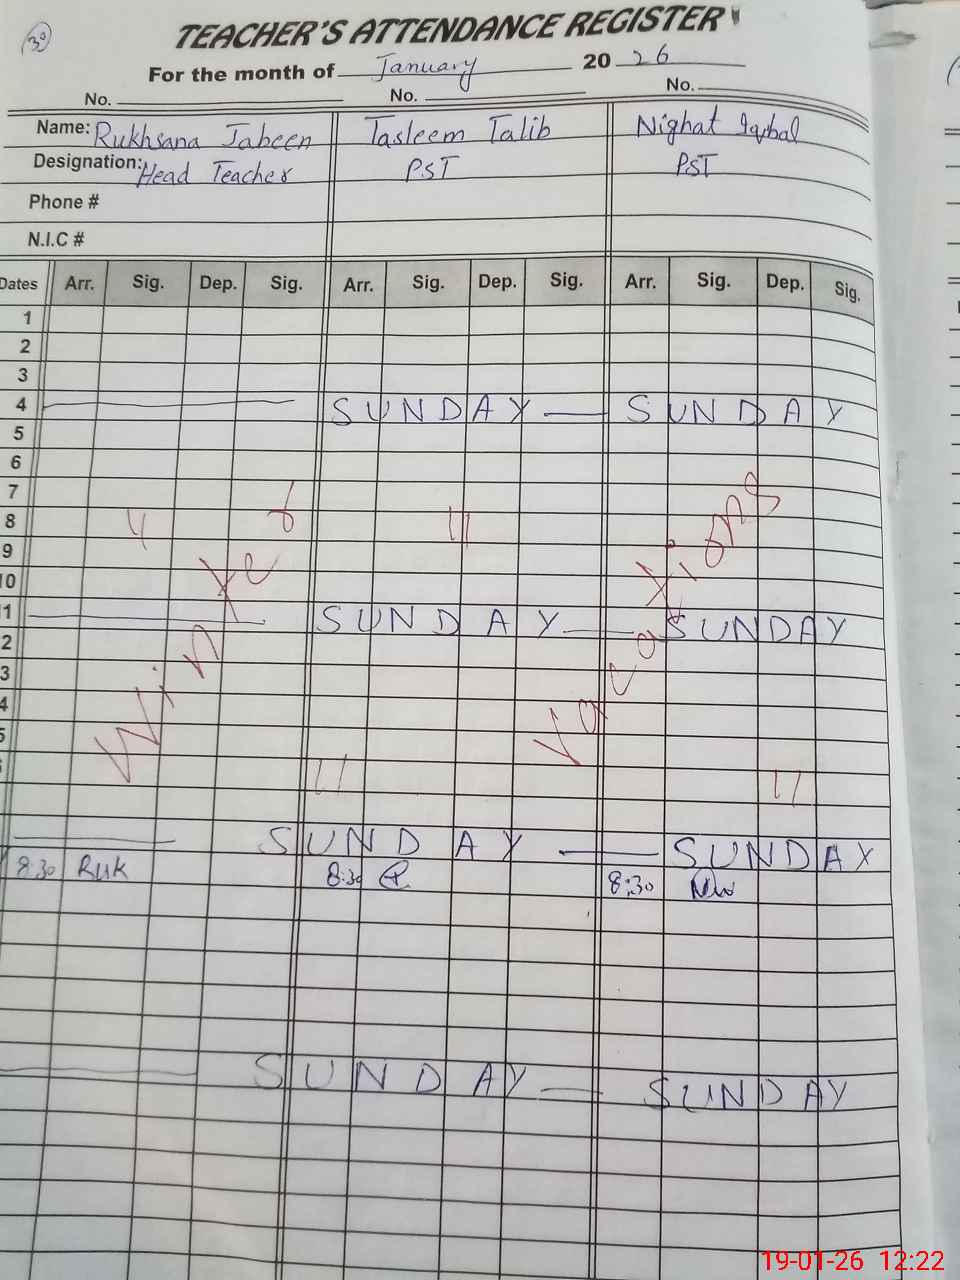 30
TEACHER'S ATTENDANCE REGISTER
For the month of January 2026
No. No. No.
Name: Rukhsana Jabeen Tasleem Talib Nighat Iqbal
Designation: Head Teacher PST PST
Phone #
N.I.C #
Dates Arr. Sig. Dep. Sig. Arr. Sig. Dep. Sig. Arr. Sig. Dep. Sig.
1
2
3
4 SUNDAY — SUNDAY
5
6
7
8
9
10
11 SUNDAY — SUNDAY
2
3
4
5
Winter Vacations
SUNDAY — SUNDAY
8:30 Ruk 8:30 8:30
SUNDAY — SUNDAY
19-01-26 12:22